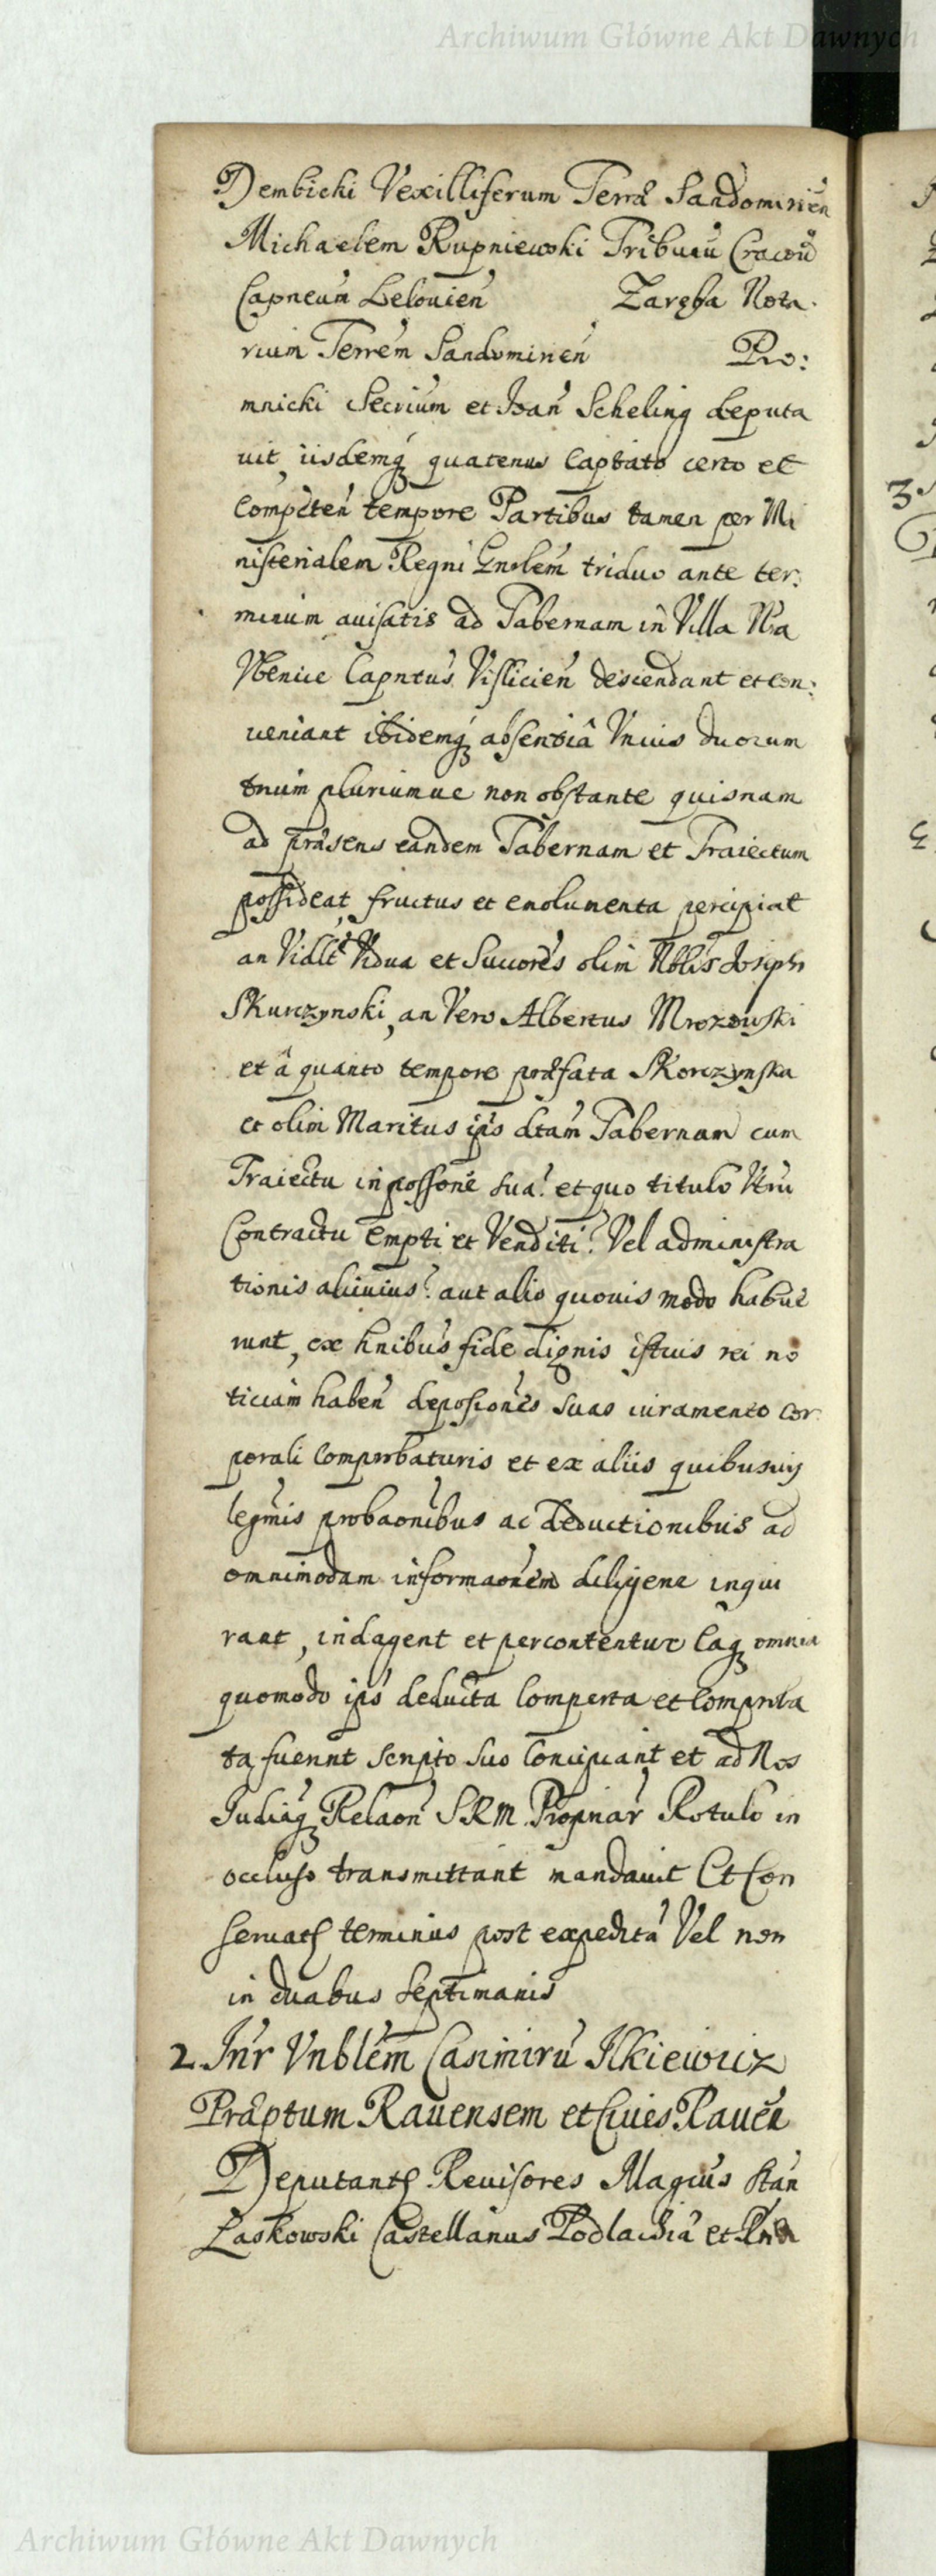 Archiwum Główne Akt Dawnych
Dembicki Vexilliferum Terræ Sandomirień
Michaelem Rupniewski Tribunū Cracoū
Capneum Leloviēn Zaręba Nota.
rium Terrēm Sandomineń Pro:
mnicki Secrium et Joan Scheling deputa
vit, iisdemq quatenus Captato certo et
Competeń tempore Partibus tamen per Mi
nisterialem Regni Gnrlem triduo ante ter:
minum avisatis ad Tabernam in Villa
Capntus Vislicień descendant et con:
veniant ibidemq absentiâ Vnius duorum
trium pluriumve non obstante quisnam
ad præsens eandem Tabernam et Traiectum
possideat, fructus et emolumenta percipiat
an Vidua et Succores olim Nblis Joseph
Skurczynski, an Vero Albertus Mrozowski
et â quanto tempore præfata Skorczynska
et olim Maritus ips dtam Tabernam cum
Traiectu in possone sua? et quo titulo Vtrū
Contractu Empti et Venditi? Vel administra
tionis alicuius? aut alio quovis modo habue
runt, ex hnibus fide dignis istius rei no
titiam habeń deposiones suas iuramento cor
porali comprobaturis et ex aliis quibusvis
legmis probaonibus ac deductionibus ad
omnimodam informaonem diligene inqui
rant, indagent et percontentur Eaq omnia
quomodo ips deducta comperta et comproba
ta fuerint scripto suo concipiant et ad Nos
Judiaq Relaon SRM Propriar Rotulo in
occluso transmittant mandavit Et Con
servath terminus post expeditā Vel non
in duabus Septimanis
2. Inr Vnblem Casimirū Ilkiewicz
Præptum Ravensem et Cives Ravēn
Deputanth Revisores Magcus Stan
Laskowski Castellanus Podlachiæ et
Archiwum Główne Akt Dawnych